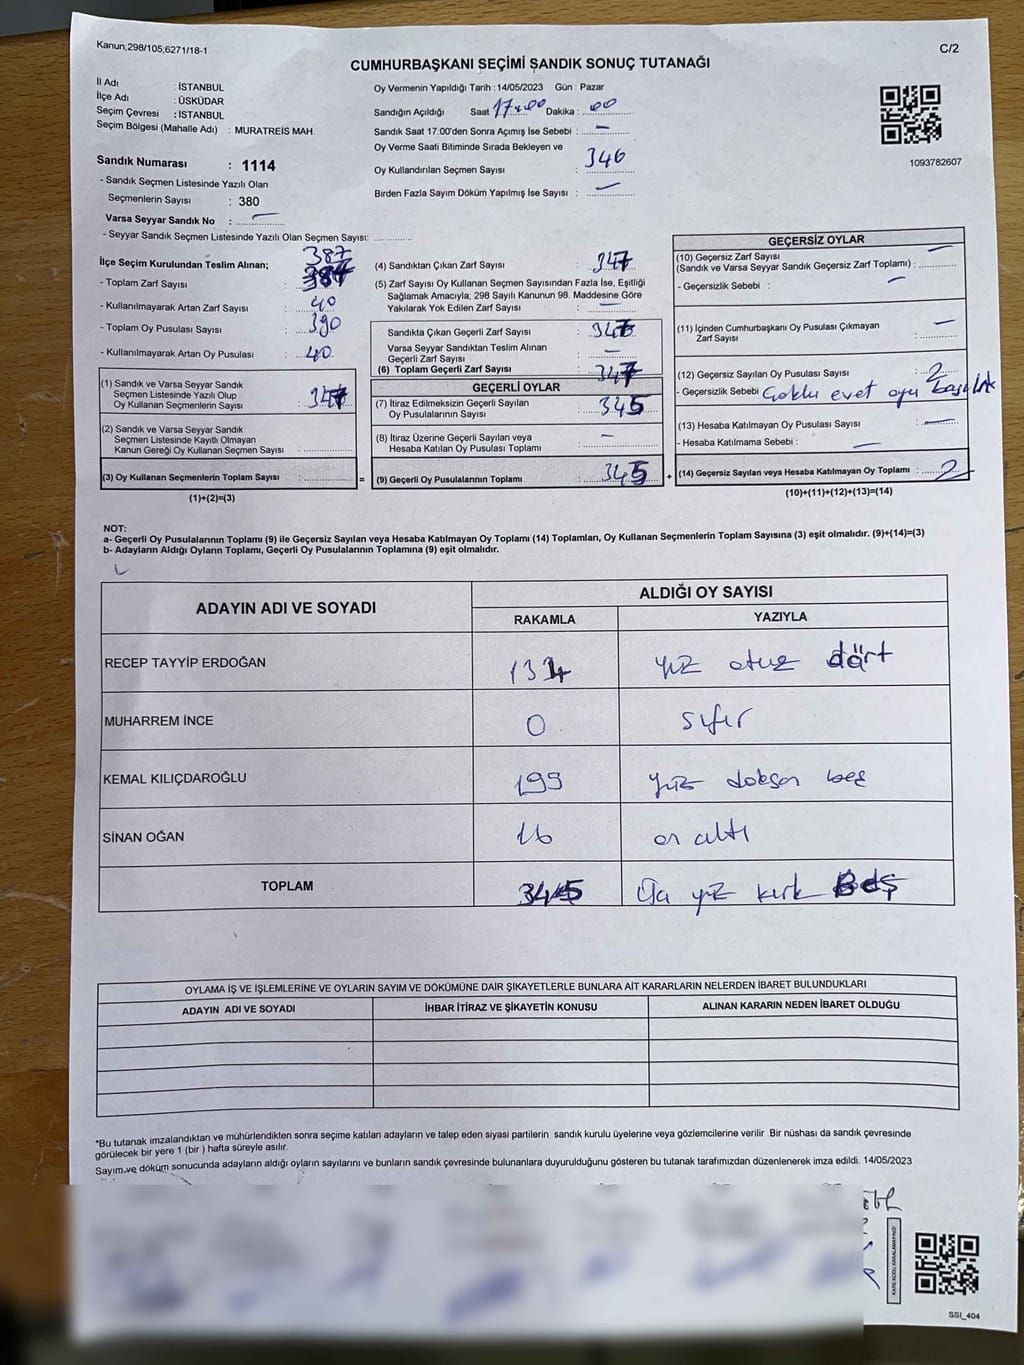 Kanun;298/105;6271/18-1
C/2
CUMHURBAŞKANI SEÇİMİ SANDIK SONUÇ TUTANAĞI
İl Adı : İSTANBUL
İlçe Adı : ÜSKÜDAR
Seçim Çevresi : İSTANBUL
Seçim Bölgesi (Mahalle Adı) : MURATREİS MAH.
Sandık Numarası : 1114
- Sandık Seçmen Listesinde Yazılı Olan
Seçmenlerin Sayısı : 380
Varsa Seyyar Sandık No : —
- Seyyar Sandık Seçmen Listesinde Yazılı Olan Seçmen Sayısı:
Oy Vermenin Yapıldığı Tarih : 14/05/2023 Gün : Pazar
Sandığın Açıldığı Saat 17:00 Dakika : 00
Sandık Saat 17:00'den Sonra Açımış İse Sebebi : —
Oy Verme Saati Bitiminde Sırada Bekleyen ve
Oy Kullandırılan Seçmen Sayısı : 346
Birden Fazla Sayım Döküm Yapılmış İse Sayısı : —
1093782607
İlçe Seçim Kurulundan Teslim Alınan; 387
- Toplam Zarf Sayısı :
- Kullanılmayarak Artan Zarf Sayısı : 40
- Toplam Oy Pusulası Sayısı : 390
- Kullanılmayarak Artan Oy Pusulası : 40
(1) Sandık ve Varsa Seyyar Sandık
Seçmen Listesinde Yazılı Olup
Oy Kullanan Seçmenlerin Sayısı : 347
(2) Sandık ve Varsa Seyyar Sandık
Seçmen Listesinde Kayıtlı Olmayan
Kanun Gereği Oy Kullanan Seçmen Sayısı :
(3) Oy Kullanan Seçmenlerin Toplam Sayısı :
=
(1)+(2)=(3)
(4) Sandıktan Çıkan Zarf Sayısı : 347
(5) Zarf Sayısı Oy Kullanan Seçmen Sayısından Fazla İse, Eşitliği
Sağlamak Amacıyla; 298 Sayılı Kanunun 98. Maddesine Göre
Yakılarak Yok Edilen Zarf Sayısı : —
Sandıkta Çıkan Geçerli Zarf Sayısı :
Varsa Seyyar Sandıktan Teslim Alınan
Geçerli Zarf Sayısı : —
(6) Toplam Geçerli Zarf Sayısı : 347
GEÇERLİ OYLAR
(7) İtiraz Edilmeksizin Geçerli Sayılan
Oy Pusulalarının Sayısı : 345
(8) İtiraz Üzerine Geçerli Sayılan veya
Hesaba Katılan Oy Pusulası Toplamı : —
(9) Geçerli Oy Pusulalarının Toplamı : 345
+
GEÇERSİZ OYLAR
(10) Geçersiz Zarf Sayısı —
(Sandık ve Varsa Seyyar Sandık Geçersiz Zarf Toplamı) :
- Geçersizlik Sebebi : —
(11) İçinden Cumhurbaşkanı Oy Pusulası Çıkmayan
Zarf Sayısı : —
(12) Geçersiz Sayılan Oy Pusulası Sayısı : 2
- Geçersizlik Sebebi Çoklu evet oyu
(13) Hesaba Katılmayan Oy Pusulası Sayısı : —
- Hesaba Katılmama Sebebi : —
(14) Geçersiz Sayılan veya Hesaba Katılmayan Oy Toplamı : 2
(10)+(11)+(12)+(13)=(14)
NOT:
a- Geçerli Oy Pusulalarının Toplamı (9) ile Geçersiz Sayılan veya Hesaba Katılmayan Oy Toplamı (14) Toplamları, Oy Kullanan Seçmenlerin Toplam Sayısına (3) eşit olmalıdır. (9)+(14)=(3)
b- Adayların Aldığı Oyların Toplamı, Geçerli Oy Pusulalarının Toplamına (9) eşit olmalıdır.
ADAYIN ADI VE SOYADI ALDIĞI OY SAYISI
RAKAMLA YAZIYLA
RECEP TAYYİP ERDOĞAN 134 yüz otuz dört
MUHARREM İNCE 0 sıfır
KEMAL KILIÇDAROĞLU 195 yüz doksan beş
SİNAN OĞAN 16 on altı
TOPLAM 345 Üç yüz kırk Beş
OYLAMA İŞ VE İŞLEMLERİNE VE OYLARIN SAYIM VE DÖKÜMÜNE DAİR ŞİKAYETLERLE BUNLARA AİT KARARLARIN NELERDEN İBARET BULUNDUKLARI
ADAYIN ADI VE SOYADI İHBAR İTİRAZ VE ŞİKAYETİN KONUSU ALINAN KARARIN NEDEN İBARET OLDUĞU
*Bu tutanak imzalandıktan ve mühürlendikten sonra seçime katılan adayların ve talep eden siyasi partilerin sandık kurulu üyelerine veya gözlemcilerine verilir .Bir nüshası da sandık çevresinde
görülecek bir yere 1 (bir ) hafta süreyle asılır.
Sayım ve döküm sonucunda adayların aldığı oyların sayılarını ve bunların sandık çevresinde bulunanlara duyurulduğunu gösteren bu tutanak tarafımızdan düzenlenerek imza edildi. 14/05/2023
SSI_404